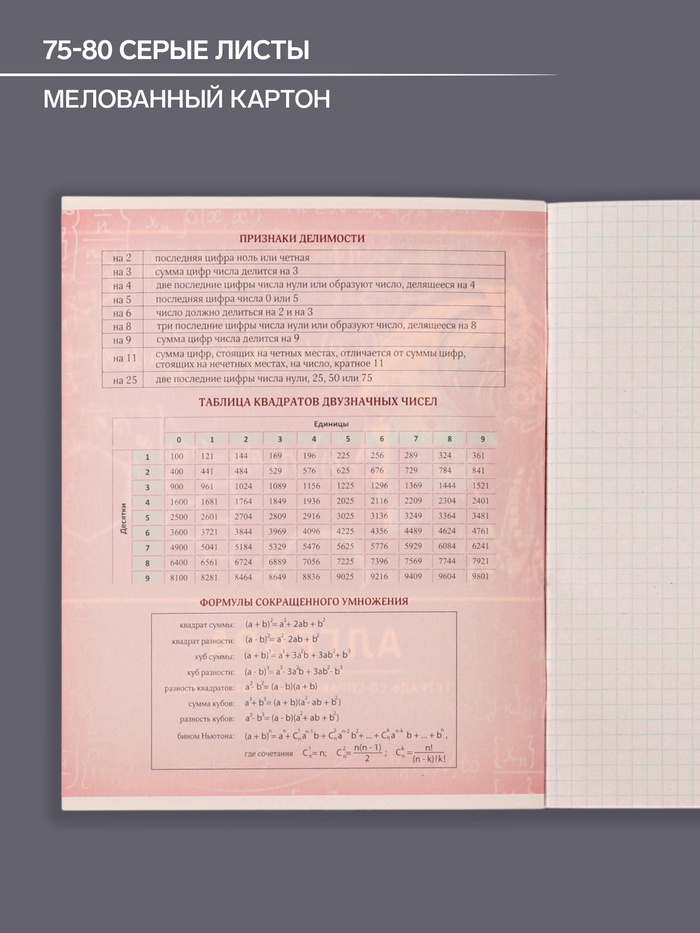 75-80 СЕРЫЕ ЛИСТЫ
МЕЛОВАННЫЙ КАРТОН
ПРИЗНАКИ ДЕЛИМОСТИ
на 2 последняя цифра ноль или четная
на 3 сумма цифр числа делится на 3
на 4 две последние цифры числа нули или образуют число, делящееся на 4
на 5 последняя цифра числа 0 или 5
на 6 число должно делиться на 2 и на 3
на 8 три последние цифры числа нули или образуют число, делящееся на 8
на 9 сумма цифр числа делится на 9
на 11 сумма цифр, стоящих на четных местах, отличается от суммы цифр,
стоящих на нечетных местах, на число, кратное 11
на 25 две последние цифры числа нули, 25, 50 или 75
ТАБЛИЦА КВАДРАТОВ ДВУЗНАЧНЫХ ЧИСЕЛ
Единицы
0 1 2 3 4 5 6 7 8 9
Десятки
1 100 121 144 169 196 225 256 289 324 361
2 400 441 484 529 576 625 676 729 784 841
3 900 961 1024 1089 1156 1225 1296 1369 1444 1521
4 1600 1681 1764 1849 1936 2025 2116 2209 2304 2401
5 2500 2601 2704 2809 2916 3025 3136 3249 3364 3481
6 3600 3721 3844 3969 4096 4225 4356 4489 4624 4761
7 4900 5041 5184 5329 5476 5625 5776 5929 6084 6241
8 6400 6561 6724 6889 7056 7225 7396 7569 7744 7921
9 8100 8281 8464 8649 8836 9025 9216 9409 9604 9801
ФОРМУЛЫ СОКРАЩЕННОГО УМНОЖЕНИЯ
квадрат суммы: (a + b)²= a²+ 2ab + b²
квадрат разности: (a - b)²= a²- 2ab + b²
куб суммы: (a + b)³= a³+ 3a²b + 3ab²+ b³
куб разности: (a - b)³= a³- 3a²b + 3ab²- b³
разность квадратов: a²- b²= (a - b)(a + b)
сумма кубов: a³+ b³= (a + b)(a²- ab + b²)
разность кубов: a³- b³= (a - b)(a²+ ab + b²)
бином Ньютона: (a + b)ⁿ= aⁿ+ C¹ₙaⁿ⁻¹b + C²ₙaⁿ⁻²b²+ ... + Cᵏₙaⁿ⁻ᵏ b + ... + bⁿ,
где сочетания C¹ₙ= n; C²ₙ= n(n - 1)/2 ; Cᵏₙ= n!/(n - k)!k!